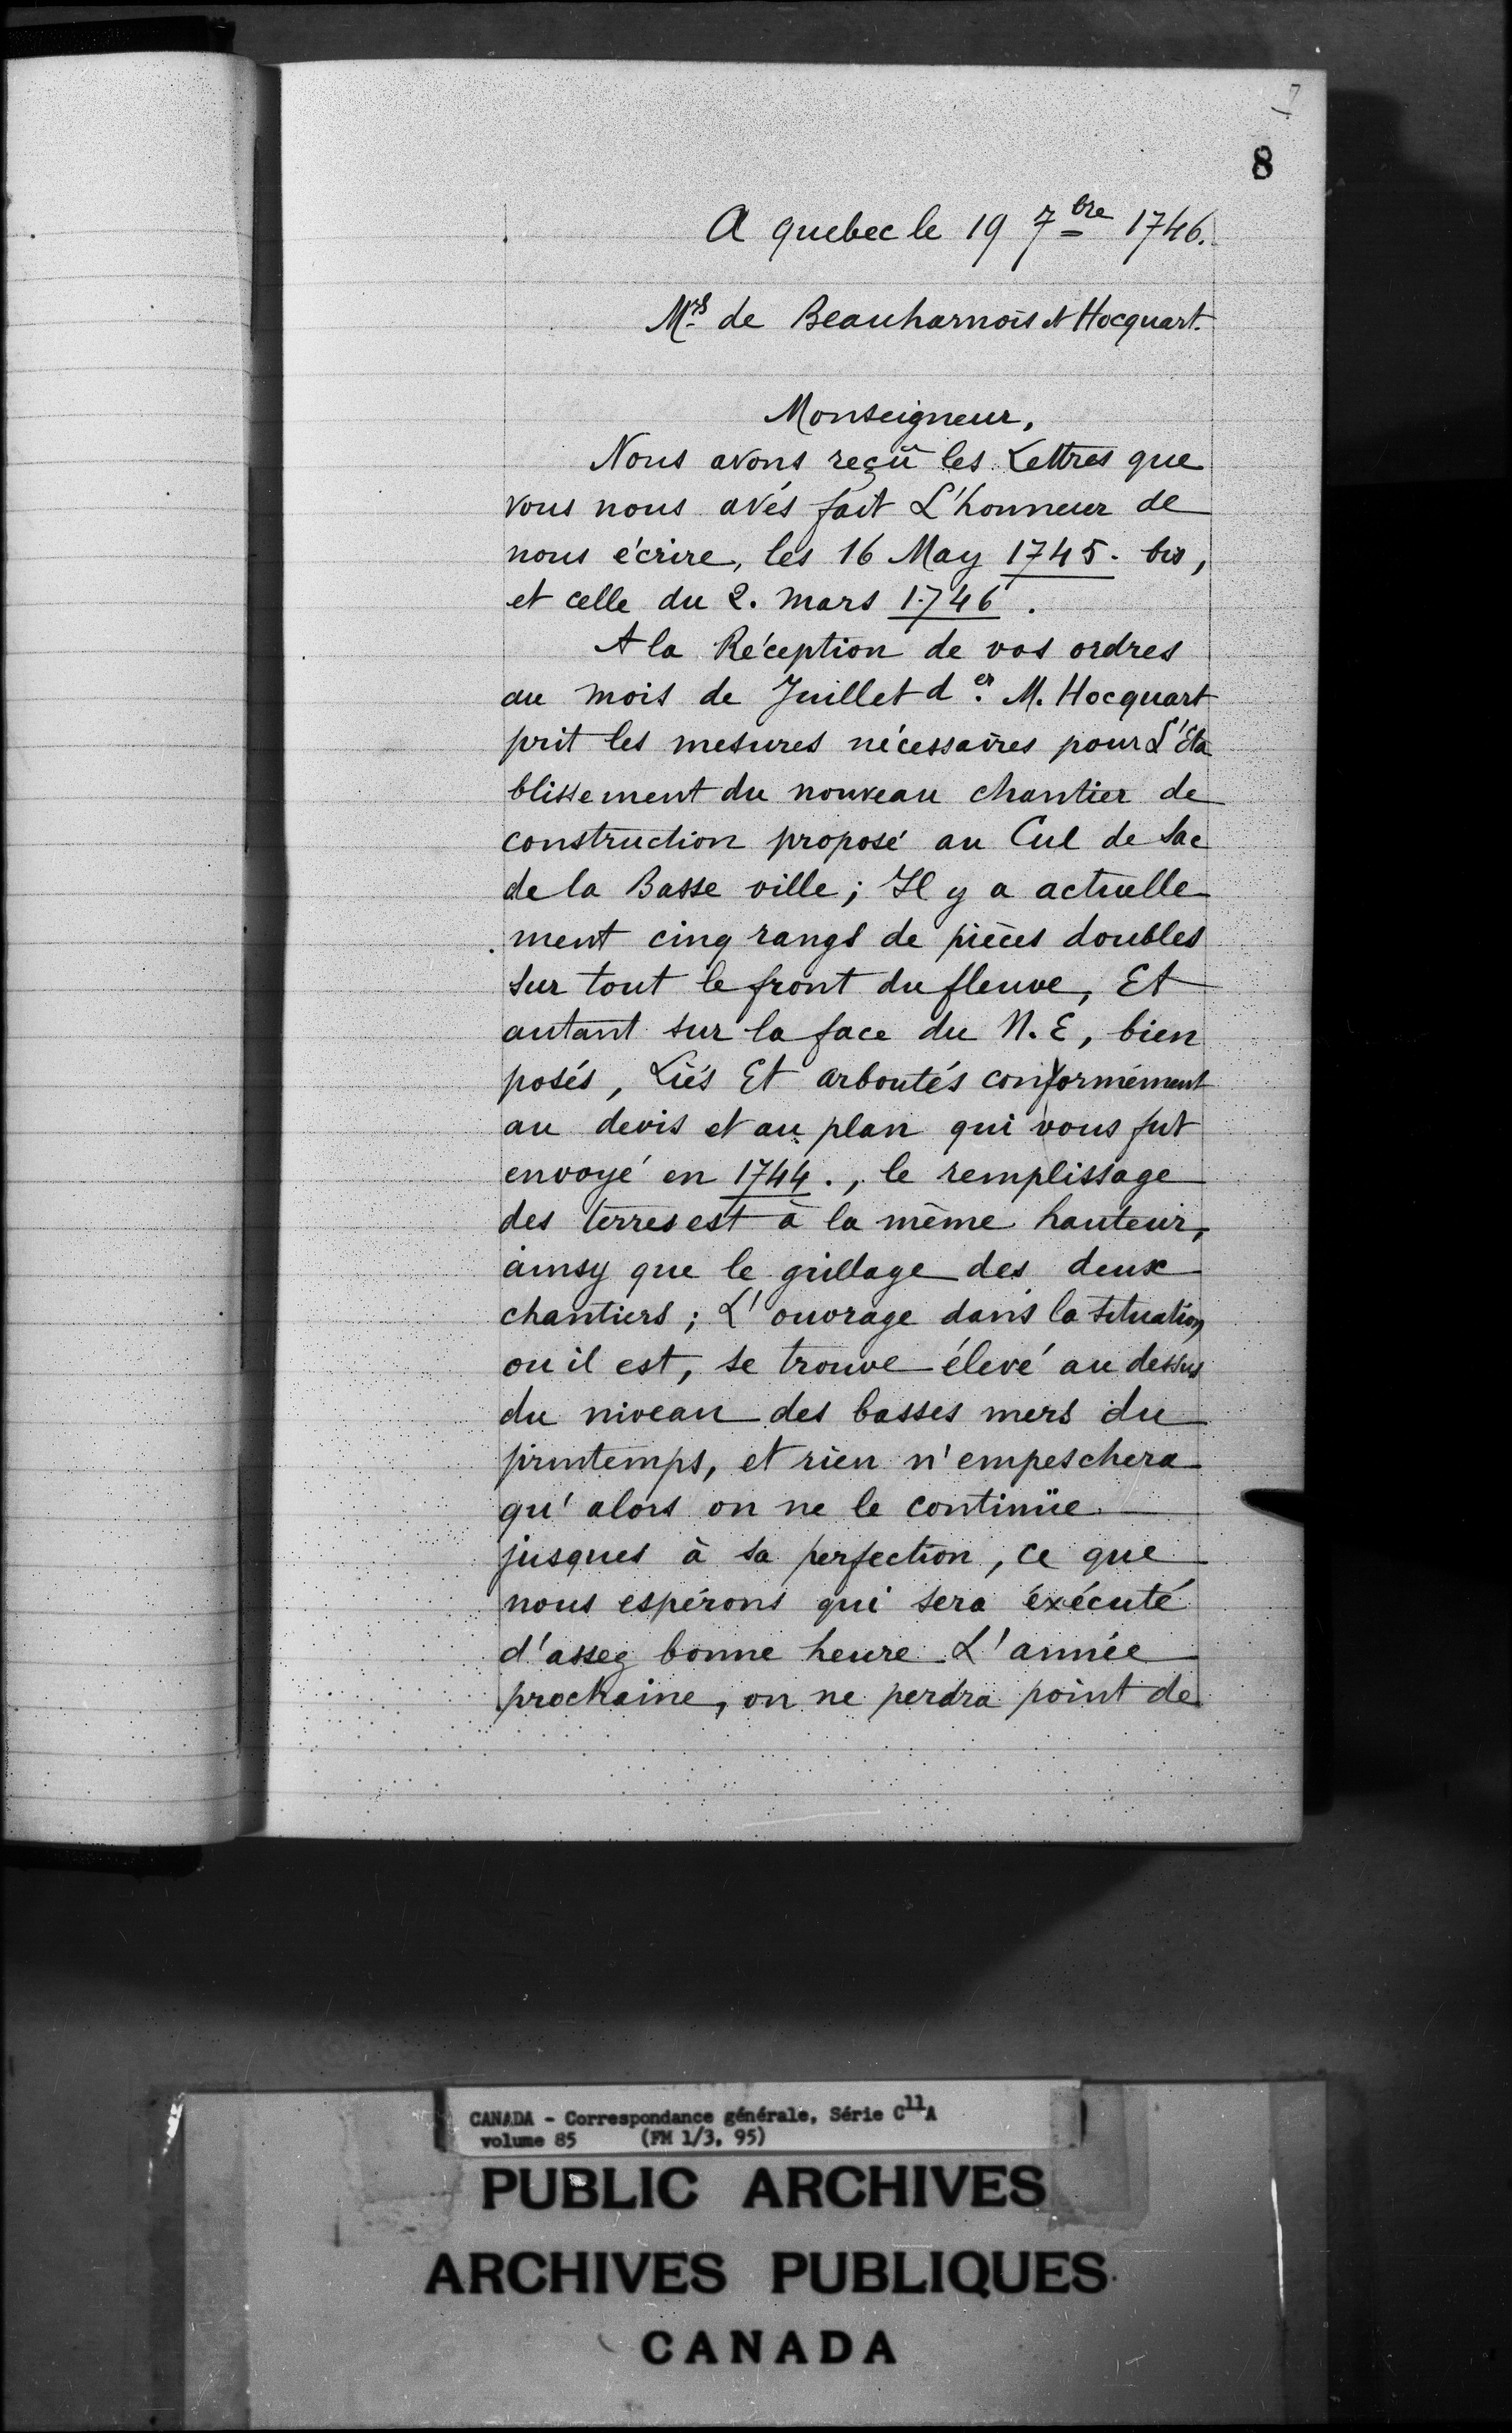 7
8
A quebec le 19 7bre 1746.
Mrs de Beauharnois et Hocquart.
Monseigneur,
Nous avons reçû les Lettres que
vous nous avés fait L'honneur de
nous écrire, les 16 May 1745. bis,
et celle du 2. mars 1746.
A la Réception de vos ordres
au mois de Juillet der. M. Hocquart
prit les mesures nécessaires pour L'Eta
blissement du nouveau chantier de
construction proposé au Cul de Sac
de la Basse ville; Il y a actuelle
ment cinq rangs de pièces doubles
sur tout le front du fleuve, Et
autant sur la face du N.E, bien
posés, Liés Et arboutés conformément
au devis et au plan qui vous fut
envoyé en 1744., le remplissage
des terres est à la même hauteur,
ainsy que le grillage des deux
chantiers; L'ouvrage dans la situation
ou il est, se trouve élevé au dessus
du niveau des basses mers du
printemps, et rien n'empeschera
qu'alors on ne le continüe
jusques à sa perfection, ce que
nous espérons qui sera éxécuté
d'assez bonne heure L'année
prochaine, on ne perdra point de
CANADA - Correspondance générale, Série C11A
volume 85 (FM 1/3, 95)
PUBLIC ARCHIVES
ARCHIVES PUBLIQUES
CANADA